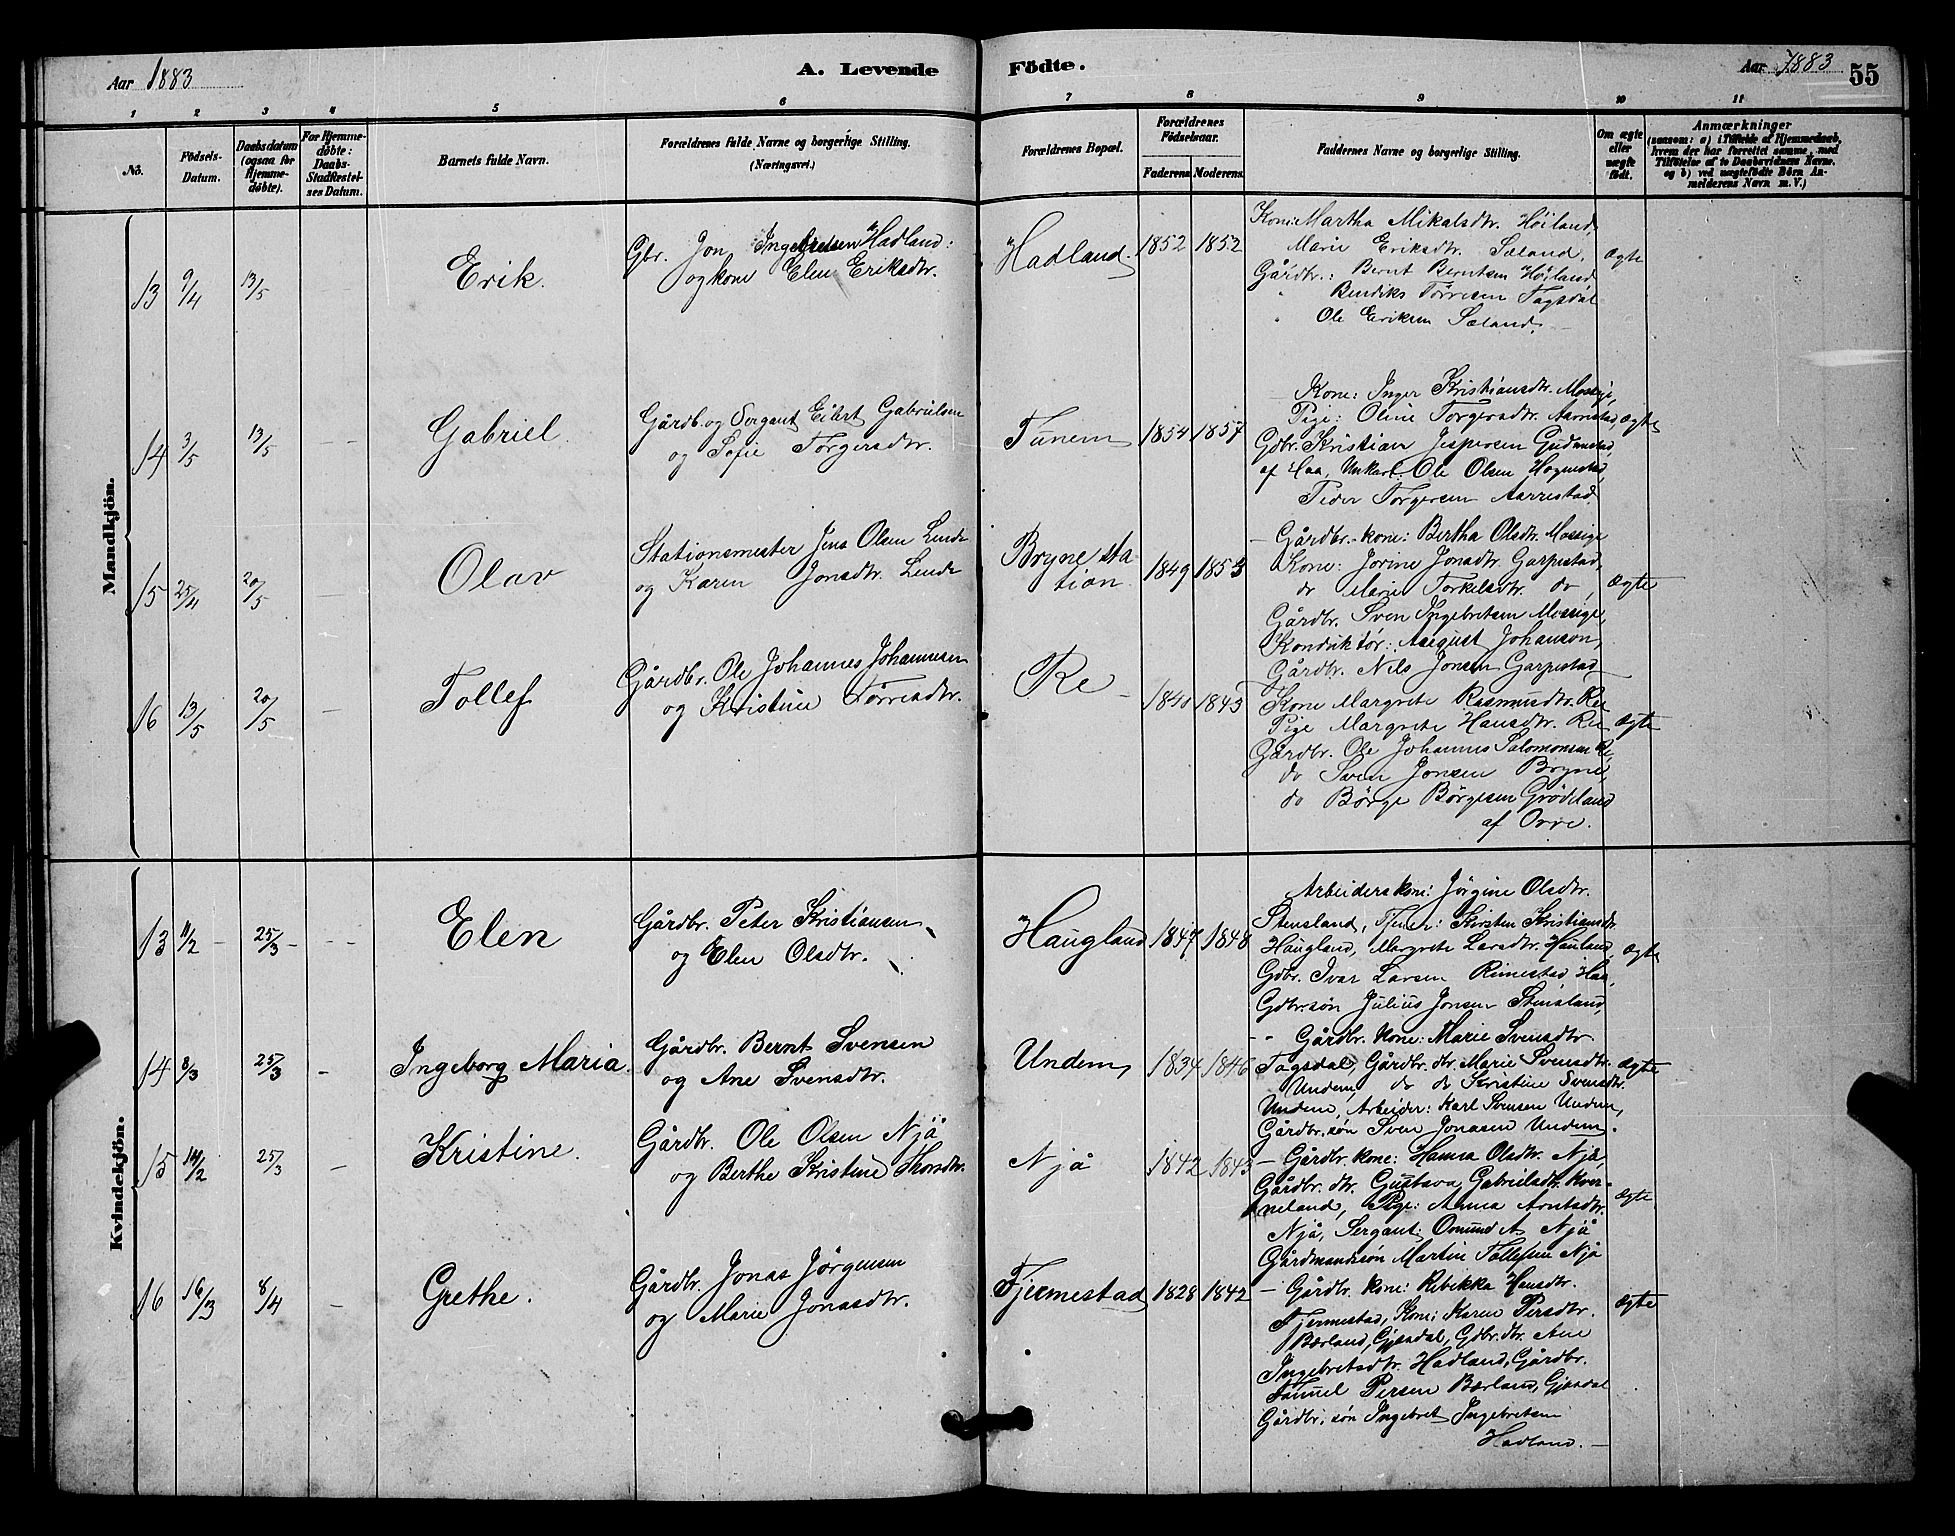 Aar 1883
A. Levende Födte.
Aar 1883
55
1 2 3 4 5 6 7 8 9 10 11
No.
Födsels-Datum.
Daabsdatum (ogsaa for Hjemme-döbte).
For Hjemme-döbte: Daabs-Stadfæstel-ses Datum.
Barnets fulde Navn.
Forældrenes fulde Navne og borgerlige Stilling. (Næringsvei.)
Forældrenes Bopæl.
Forældrenes Födselsaar.
Faderens Moderens
Faddernes Navne og borgerlige Stilling.
Om ægte eller uægte födt.
Anmærkninger (saasom: a) i Tilfælde af Hjemmedaab, hvem der har forrettet samme, med Tilföielse af to Daabsvidners Navne. og b) ved uægtefödte Börn An-melderens Navn m. V.)
Mandkjön.
13 9/4 13/5
Erik.
Gbr. Jon Ingebretsen Hadland:
og kone Elen Eriksdtr.
Hadland. 1852 1852
Kone: Martha Mikalsdtr. Höiland,
Marie Eriksdtr. Sæland,
Gårdbr.: Bernt Berntsen Höiland,
" Bendiks Törresen Tagsdal
" Ole Eriksen Sæland.
Ægte
14 3/5 13/5
Gabriel.
Gårdb. og Sergant Eilert Gabrielsen
og Sofie Torgersdtr.
Tunem 1854 1857
Kone: Inger Kristiansdtr. Mossige,
Pige: Oline Torgersdtr. Aarrestad,
Gdbr. Kristian Jespersen Gudmestad,
af Haa, Unkarl: Ole Olsen Hognestad,
Peder Torgersen Aarrestad.
Ægte
15 25/4 20/5
Olav
Stationsmester Jens Olsen Lende
og Karen Jonsdtr. Lende
Bryne sta-
tion. 1849 1853
Gårdbr.-kone: Bertha Olsdtr. Mossige
Kone: Jorine Jonsdtr. Garpestad,
do Marie Torkelsdtr. do,
Gårdbr. Sven Ingebretsen Mossige,
Konduktör: August Johanson,
Gårdbr. Nils Jonsen Garpestad
Ægte
16 13/5 20/5
Tollef
Gårdbr. Ole Johannes Johannesen
og Kristine Törresdtr.
Re 1843
Kone Margrete Rasmusdtr. Re
Pige Margrete Hansdtr. Re
Gårdbr. Ole Johannes Salomonsen Re,
do Sven Jonsen Bryne,
do Börge Börgesen Grödeland
af Orre.
Ægte
Kvindekjön.
13 11/2 25/3
Elen
Gårdbr. Peter Kristiansen
og Elen Olsdtr.
Haugland 1847 1848
Arbeiderskone: Jörgine Olsdtr.
Stensland, Kirsten Kristiansdtr
Haugland, Margrete Larsdtr. Hauland,
Gdbr. Ivar Larsen Rimestad Haa,
Gdbr. sön Julius Jonsen Stensland,
Ægte
14 8/3 25/3
Ingeborg Maria.
Gårdbr. Bernt Svensen
og Ane Svensdtr.
Undem 1834 1846
Gårdbr. kone: Marie Svensdtr
Tagsdal, Gårdbr. dtr. Marie Svensdtr.
Undem, do do Kristine Svensdtr.
Undem, Arbeider: Karl Svensen Undem,
Gårdbr. sön Sven Jonasen Undem.
Ægte
15 14/2 25/3
Kristine.
Gårdbr. Ole Olsen Njå
og Berthe Kristine Thorsdtr.
Njå 1842 1843
Gårdbr. kone: Hanna Olsdtr. Njå,
Gårdbr. dtr. Gustava Gabrielsdtr. Kver-
neland, Pige: Anna Arntsdtr.
Njå, Sergant: Osmund A. Njå
Gårdmandssön Martin Tollefsen Njå
Ægte
16 16/3 8/4
Grethe.
Gårdbr. Jonas Jörgensen
og Marie Jonasdtr.
Fjermestad 1828 1842
Gårdbr. kone: Rebekka Hansdtr.
Fjermestad, Kone: Karen Persdtr.
Bærland, Gjesdal, Gdbr. dtr. Ane
Ingebretsdtr. Hadland, Gårdbr.
Samuel Persen Bærland, Gjesdal
Gårdbr. sön Ingebret Ingebretsen
Hadland.
Ægte